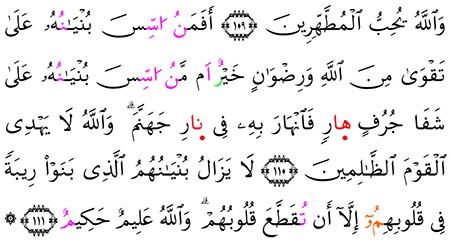 وَٱللَّهُ يُحِبُّ ٱلْمُطَّهِّرِينَ ١٠٩ أَفَمَنُ اسِّسَ بُنْيَٰنُهُۥ عَلَىٰ
تَقْوَىٰ مِنَ ٱللَّهِ وَرِضْوَٰنٍ خَيْرٌ اَم مَّنُ اسِّسَ بُنْيَٰنُهُۥ عَلَىٰ
شَفَا جُرُفٍ هارٍ فَٱنْهَارَ بِهِۦ فِى نارِ جَهَنَّمَۗ وَٱللَّهُ لَا يَهْدِى
ٱلْقَوْمَ ٱلظَّٰلِمِينَ ١١٠ لَا يَزَالُ بُنْيَٰنُهُمُ ٱلَّذِى بَنَوْا۟ رِيبَةً
فِى قُلُوبِهِمُۥٓ إِلَّآ أَن تُقَطَّعَ قُلُوبُهُمْۗ وَٱللَّهُ عَلِيمٌ حَكِيمٌ ١١١ ۞